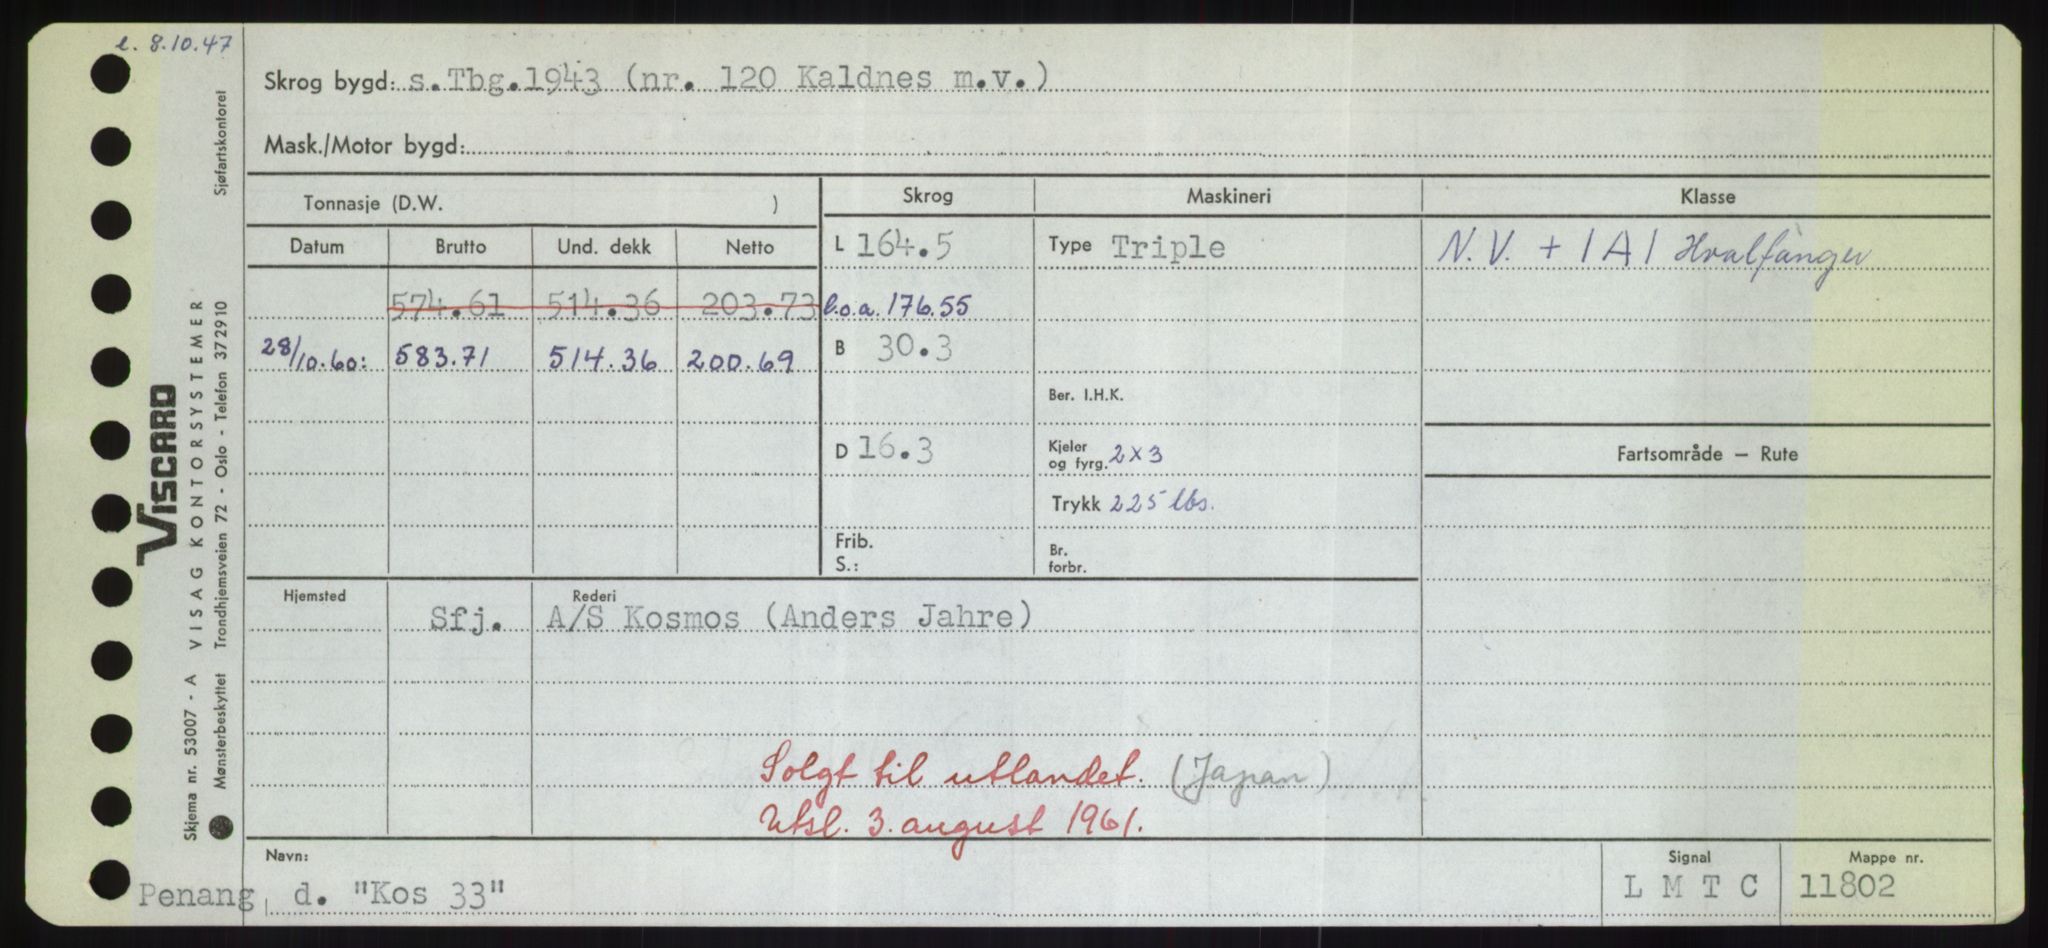 e. 8.10.47
Skrog bygd: s.Tbg.1943 (nr. 120 Kaldnes m.v.)
Mask./Motor bygd:
Tonnasje (D.W. )
Skrog Maskineri Klasse
Datum Brutto Und. dekk Netto
L 164.5 Type Triple N.V. + 1A1 Hvalfanger
574.61 514.36 203.73 l.o.a. 176.55
28/10.60: 583.71 514.36 200.69 B 30.3
Ber. I.H.K.
D 16.3 Kjeler og fyrg. 2 x 3 Fartsområde — Rute
Trykk 225 lbs.
Frib.
S.:
Br. forbr.
Hjemsted Rederi
Sfj. A/S Kosmos (Anders Jahre)
Solgt til utlandet. (Japan)
Utsl. 3. august 1961.
Navn: Signal Mappe nr.
Penang, d. "Kos 33" L M T C 11802
VISCARD
Skjema nr. 53007 - A VISAG KONTORSYSTEMER
Mønsterbeskyttet Trondhjemsveien 72 - Oslo - Telefon 372910 Sjøfartskontoret